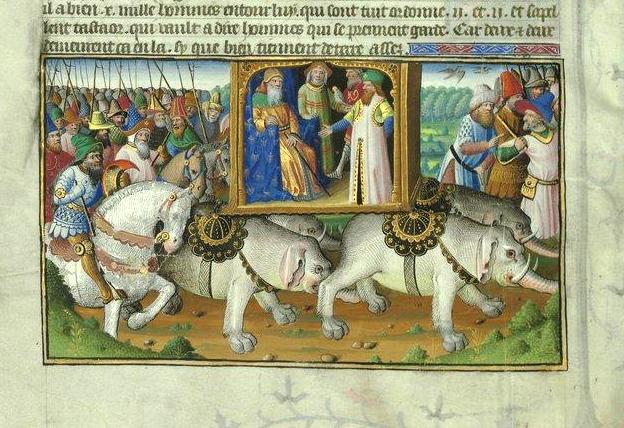 il a bien .x. mille hommes entour luy. qui sont tuit ordonne .ii. et .ii. et sapel
lent tastaor. qui vault a dire hommes qui se prennent garde. Car deux et deux
demeurent ca en la. sy que bien tiennent de terre assez.